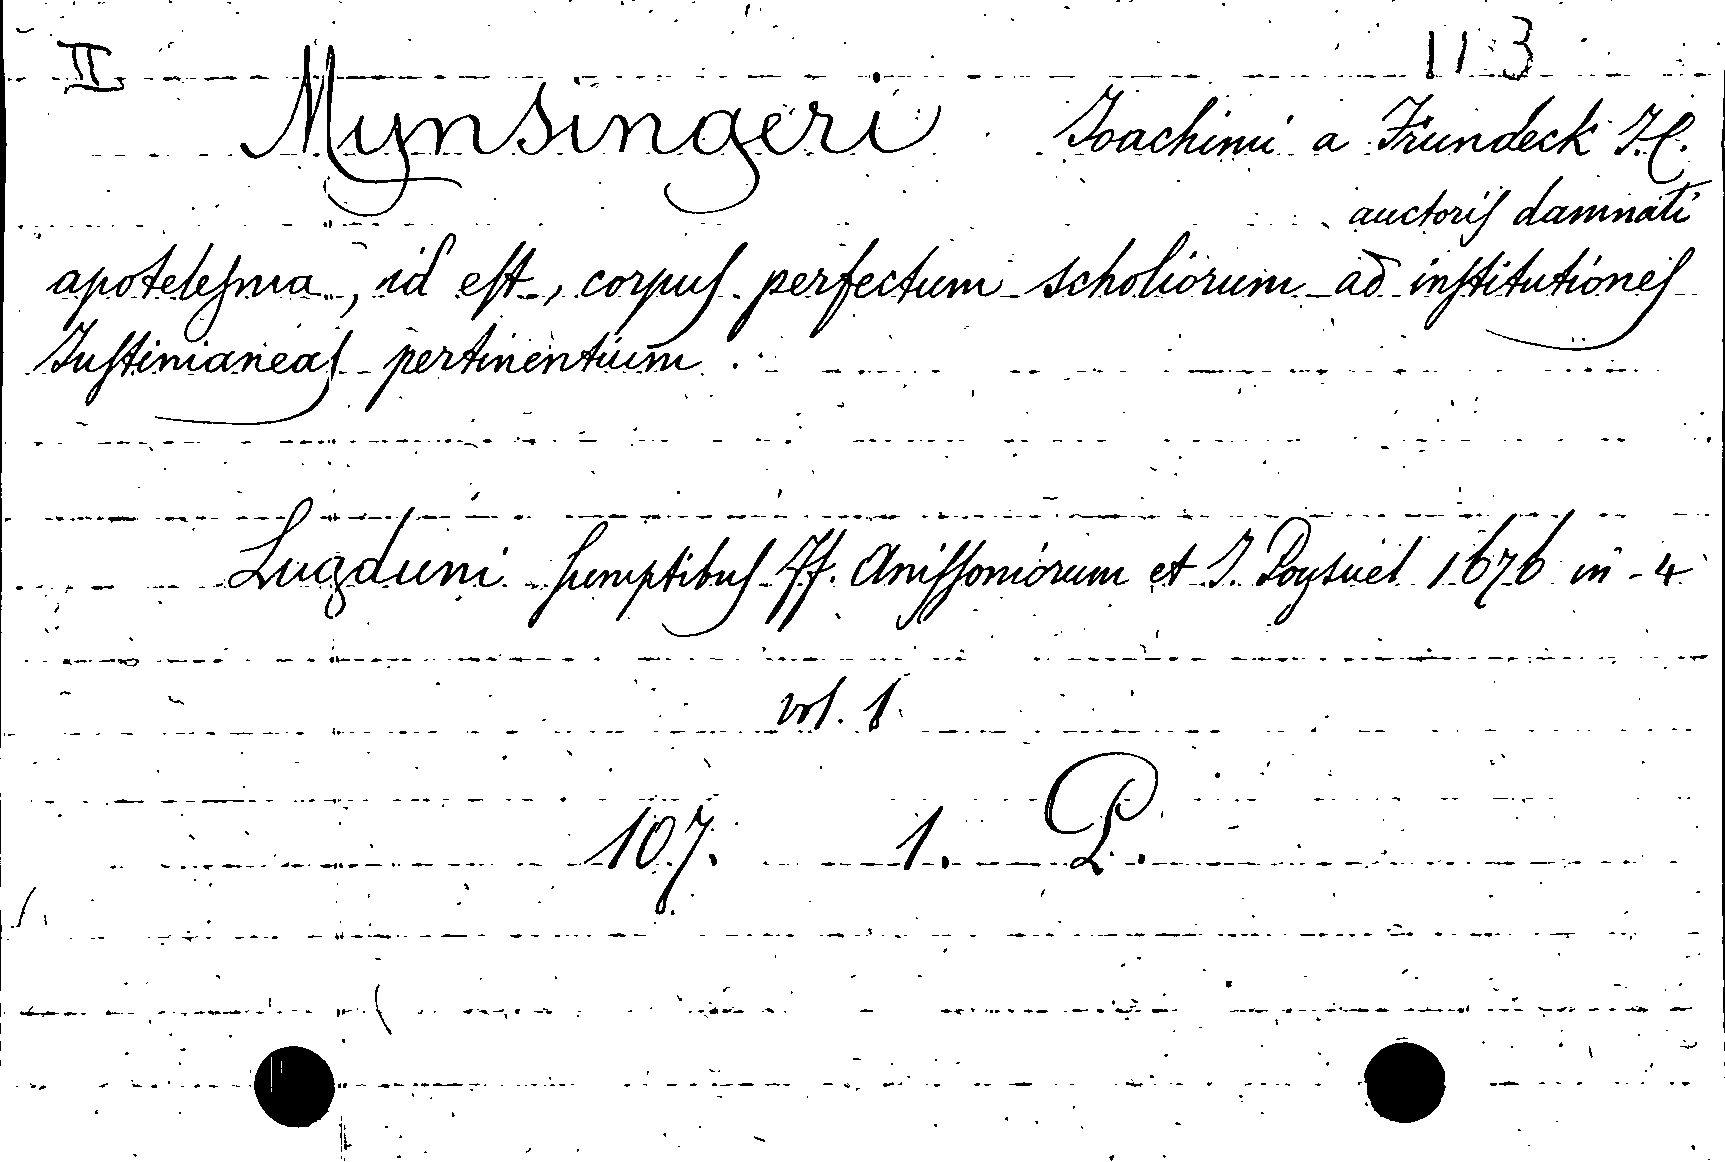 II. 113
Mynsingeri Joachimi a Frundeck J.C.
auctoriſ damnati
apoteleſma, id eſt, corpuſ perfectum scholiorum ad inſtitutioneſ
Juſtinianeaſ pertinentium.
Lugduni ſumptibuſ ff. Aniſſoniorum et J. Poysuel 1676 in-4
vol. 1.
107. 1. P.